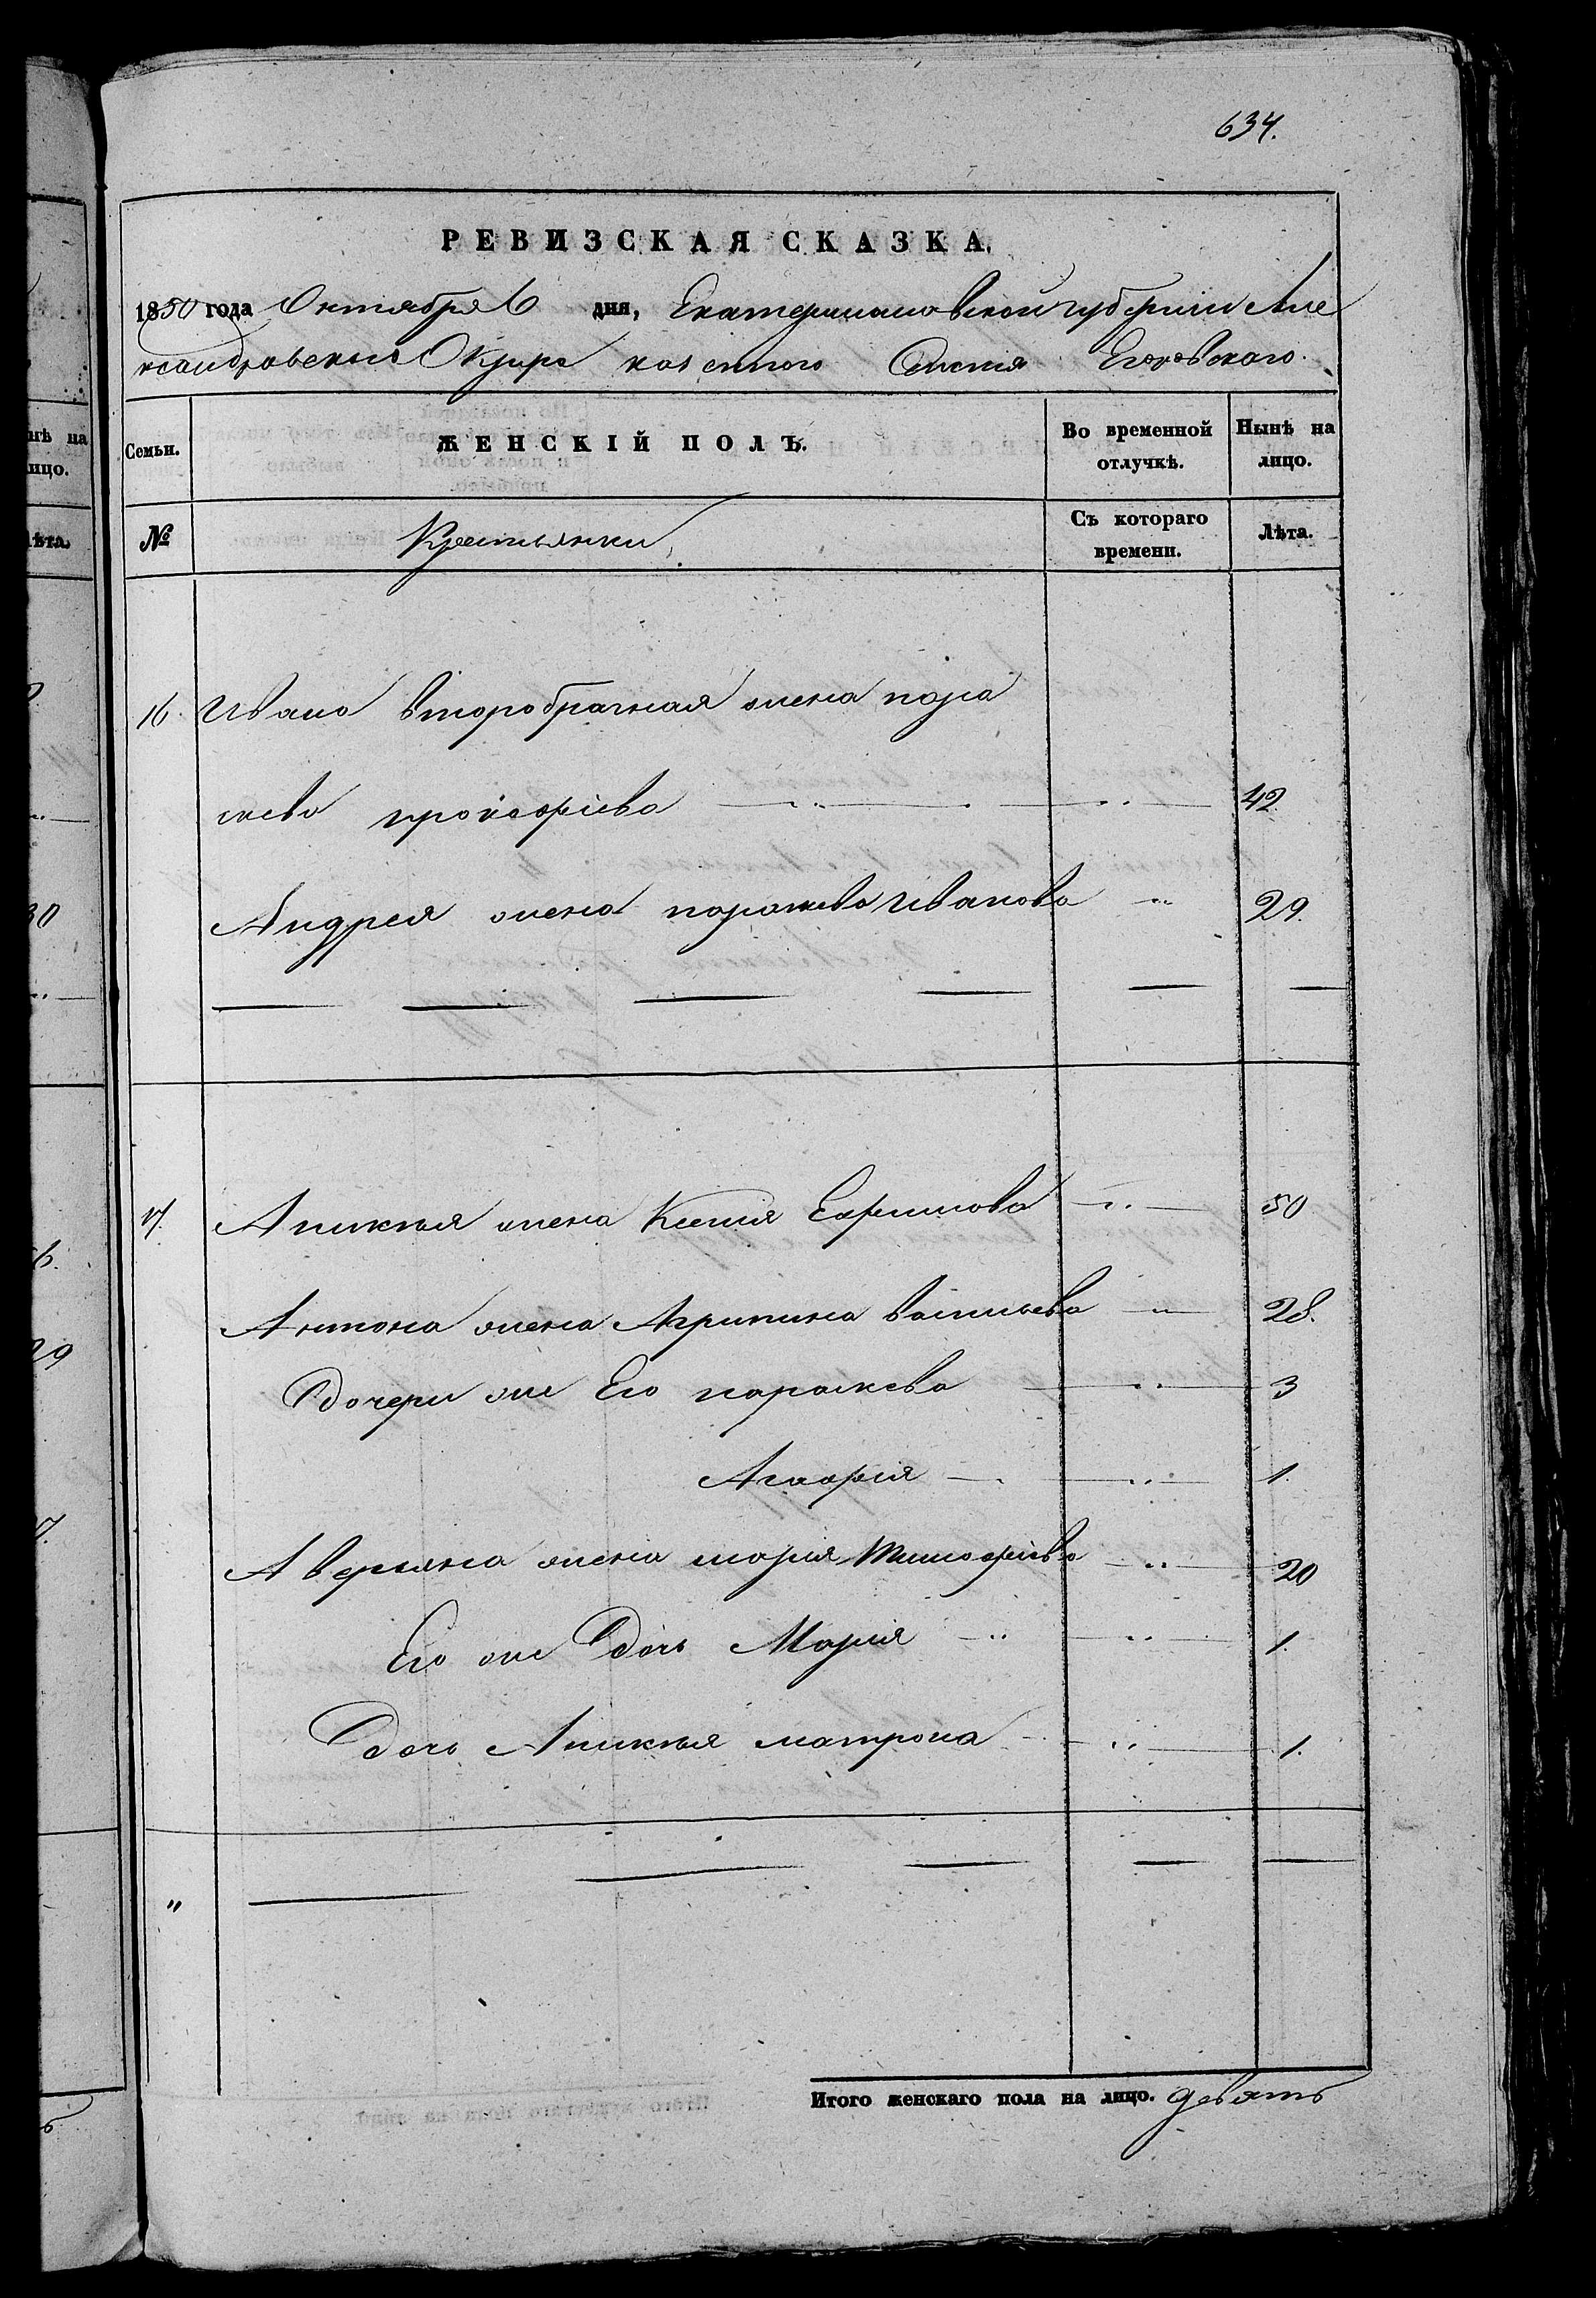 634.
РЕВИЗСКАЯ СКАЗКА.
1850 года Октября 6 дня, Екатеринославской губернии Але
ксандровскаго Округа казенного Селения
Семьи. ЖЕНСКІЙ ПОЛЪ. Во временной отлучкѣ. Нынѣ на лицо.
№ Крестьянки Съ котораго времени. Лѣта.
16. Ивана второбрачная жена пара
скева прокофіева 42.
Андрея жена параскева Иванова 29.
17. Аникия жена Ксения Ефимова 50
Антона жена Агрипина Васильева 28.
Дочери же Его параскева 3
Агафия 1.
Аверьяна жена мария Тимофиева 20
Его же Дочь Мария 1.
Дочь Аникия матрона 1.
"
Итого женскаго пола на лицо. девять